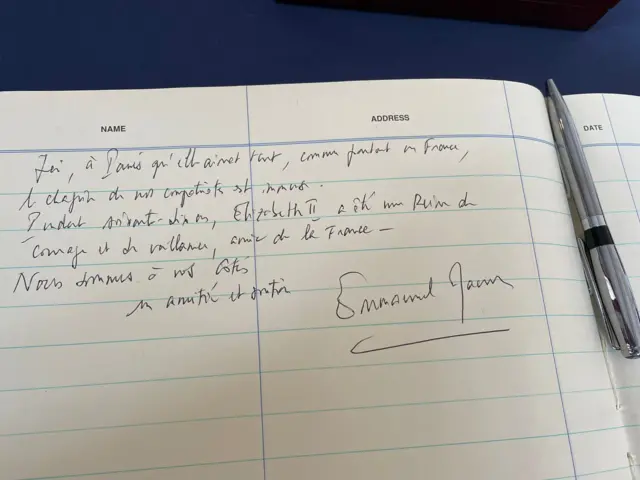 NAME ADDRESS DATE
Ici, à Paris qu'elle aimait tant, comme partout en France,
le chagrin de nos compatriotes est immense.
Pendant soixante-dix ans, Elizabeth II a été une Reine de
courage et de vaillance, amie de la France —
Nous sommes à vos côtés
en amitié et soutien
Emmanuel Macron